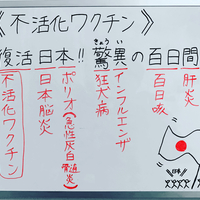 《不活化ワクチン》
復活日本!! 驚異の百日間
きょうい
肝炎
百日咳
インフルエンザ
狂犬病
ポリオ(急性灰白髄炎)
日本脳炎
不活化ワクチン